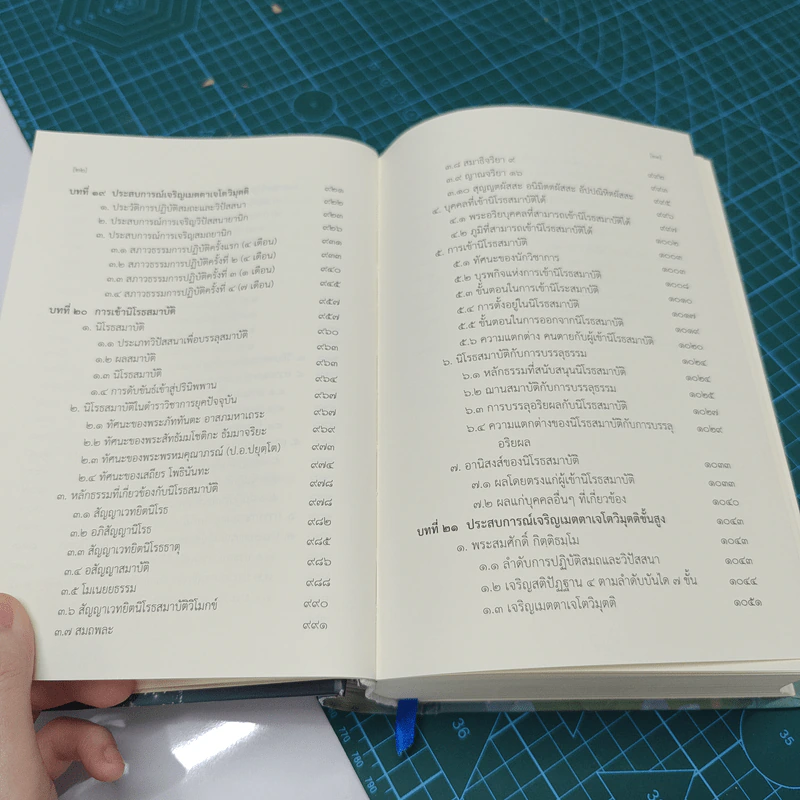 บทที่ ๑๙ ประสบการณ์เจริญเมตตาเจโตวิมุตติ ๙๒๑
๑. ประวัติการปฏิบัติสมถะและวิปัสสนา ๙๒๒
๒. ประสบการณ์การเจริญวิปัสสนายานิก ๙๒๓
๓. ประสบการณ์การเจริญสมถยานิก ๙๒๖
๓.๑ สภาวธรรมการปฏิบัติครั้งแรก (๔ เดือน) ๙๓๑
๓.๒ สภาวธรรมการปฏิบัติครั้งที่ ๒ (๔ เดือน) ๙๓๓
๓.๓ สภาวธรรมการปฏิบัติครั้งที่ ๓ (๑ เดือน) ๙๔๐
๓.๔ สภาวธรรมการปฏิบัติครั้งที่ ๔ (๗ เดือน) ๙๔๕
บทที่ ๒๐ การเข้านิโรธสมาบัติ ๙๕๗
๑. นิโรธสมาบัติ ๙๕๗
๑.๑ ประเภทวิปัสสนาเพื่อบรรลุสมาบัติ ๙๖๐
๑.๒ ผลสมาบัติ ๙๖๓
๑.๓ นิโรธสมาบัติ ๙๖๓
๑.๔ การดับขันธ์เข้าสู่ปรินิพพาน ๙๖๔
๒. นิโรธสมาบัติในตำราวิชาการยุคปัจจุบัน ๙๖๗
๒.๑ ทัศนะของพระภัททันตะ อาสภมหาเถระ ๙๖๗
๒.๒ ทัศนะของพระสัทธัมมโชติกะ ธัมมาจริยะ ๙๖๙
๒.๓ ทัศนะของพระพรหมคุณาภรณ์ (ป.อ.ปยุตฺโต) ๙๗๓
๒.๔ ทัศนะของเสถียร โพธินันทะ ๙๗๔
๓. หลักธรรมที่เกี่ยวข้องกับนิโรธสมาบัติ ๙๗๘
๓.๑ สัญญาเวทยิตนิโรธ ๙๗๘
๓.๒ อภิสัญญานิโรธ ๙๘๒
๓.๓ สัญญาเวทยิตนิโรธธาตุ ๙๘๕
๓.๔ อสัญญาสมาบัติ ๙๘๖
๓.๕ โมเนยยธรรม ๙๘๘
๓.๖ สัญญาเวทยิตนิโรธสมาบัติวิโมกข์ ๙๙๐
๓.๗ สมถพละ ๙๙๑
๓.๘ สมาธิจริยา ๙
๓.๙ ญาณจริยา ๑๖ ๙๙๒
๓.๑๐ สุญญตผัสสะ อนิมิตตผัสสะ อัปปณิหิตผัสสะ ๙๙๓
๔. บุคคลที่เข้านิโรธสมาบัติได้ ๙๙๕
๔.๑ พระอริยบุคคลที่สามารถเข้านิโรธสมาบัติได้ ๙๙๖
๔.๒ ภูมิที่สามารถเข้านิโรธสมาบัติได้ ๙๙๗
๕. การเข้านิโรธสมาบัติ ๑๐๐๒
๕.๑ ทัศนะของนักวิชาการ ๑๐๐๓
๕.๒ บุรพกิจแห่งการเข้านิโรธสมาบัติ ๑๐๐๓
๕.๓ ขั้นตอนในการเข้านิโรธสมาบัติ ๑๐๐๘
๕.๔ การตั้งอยู่ในนิโรธสมาบัติ ๑๐๑๐
๕.๕ ขั้นตอนในการออกจากนิโรธสมาบัติ ๑๐๑๗
๕.๖ ความแตกต่าง คนตายกับผู้เข้านิโรธสมาบัติ ๑๐๑๙
๖. นิโรธสมาบัติกับการบรรลุธรรม ๑๐๒๐
๖.๑ หลักธรรมที่สนับสนุนนิโรธสมาบัติ ๑๐๒๔
๖.๒ ฌานสมาบัติกับการบรรลุธรรม ๑๐๒๔
๖.๓ การบรรลุอริยผลกับนิโรธสมาบัติ ๑๐๒๕
๖.๔ ความแตกต่างของนิโรธสมาบัติกับการบรรลุ ๑๐๒๗
อริยผล ๑๐๒๙
๗. อานิสงส์ของนิโรธสมาบัติ ๑๐๓๓
๗.๑ ผลโดยตรงแก่ผู้เข้านิโรธสมาบัติ ๑๐๓๓
๗.๒ ผลแก่บุคคลอื่นๆ ที่เกี่ยวข้อง ๑๐๔๐
บทที่ ๒๑ ประสบการณ์เจริญเมตตาเจโตวิมุตติขั้นสูง ๑๐๔๓
๑. พระสมศักดิ์ กิตติธมฺโม ๑๐๔๓
๑.๑ ลำดับการปฏิบัติสมถและวิปัสสนา ๑๐๔๓
๑.๒ เจริญสติปัฏฐาน ๔ ตามลำดับบันได ๗ ขั้น ๑๐๔๔
๑.๓ เจริญเมตตาเจโตวิมุตติ ๑๐๕๑
770
780
790
36
35